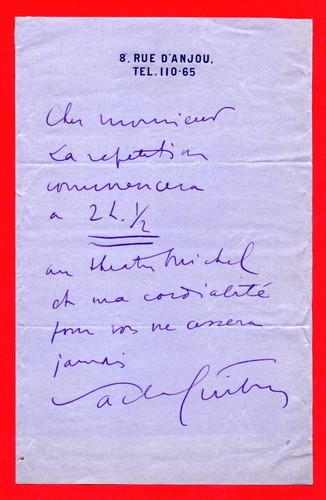 8, RUE D'ANJOU.
TEL. 110-65
Cher monsieur
La repetition
commencera
a 2h. 1/2
au theatre Michel
et ma cordialité
pour vos ne cessera
jamais
Sacha Guitry